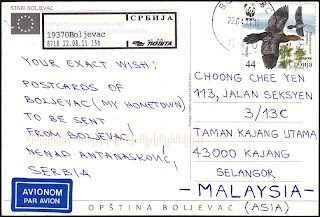 STARI BOLJEVAC
СРБИЈА
19370Boljevac
8718 22.08.11 15h
ПОШТА
WWF
44
YOUR EXACT WISH:
POSTCARDS OF
BOLJEVAC (MY HOMETOWN)
TO BE SENT
FROM BOLJEVAC!
NENAD ANTANASKOVIĆ,
SERBIA
AVIONOM
PAR AVION
CHOONG CHEE YEN
113, JALAN SEKSYEN
3/13C
TAMAN KAJANG UTAMA
43000 KAJANG
SELANGOR
- MALAYSIA -
(ASIA)
OPŠTINA BOLJEVAC